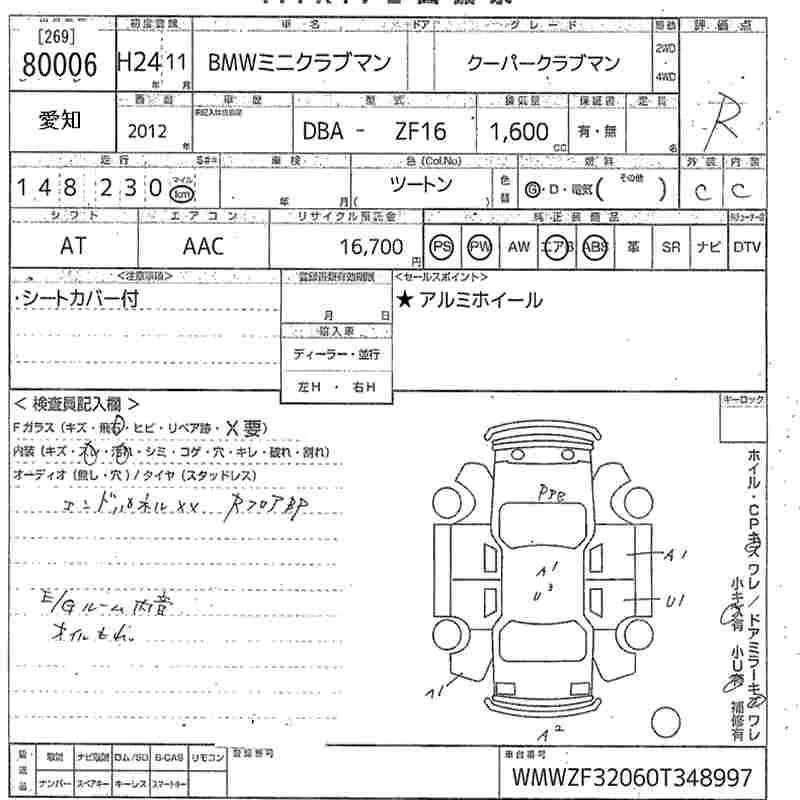 初度登録 車名 ドア グレード 評価点
[269]
80006 H24 11 BMWミニクラブマン クーパークラブマン 2WD・4WD
年 月
車歴 型式 排気量 定員
愛知 2012年 DBA - ZF16 1,600cc 有・無 名 R
走行 車検 色(Col.No) 燃料 外装 内装
148230 マイル km 年 月 ツートン 色替 G・D・電気(その他) C C
シフト エアコン リサイクル預託金 純正装備品
AT AAC 16,700円 PS PW AW エアB ABS 革 SR ナビ DTV
<注意事項> 登録書類有効期限 <セールスポイント>
・シートカバー付 月 日 ★アルミホイール
輸入車
ディーラー・並行
左H・右H
<検査員記入欄> キーロック
Fガラス(キズ・飛石・ヒビ・リペア跡・X要)
内装(キズ・スレ・汚れ・シミ・コゲ・穴・キレ・破れ・割れ)
オーディオ(無し・穴)/タイヤ(スタッドレス)
エンドパネルXX RフロアBP
E/Gルーム内音
オイルもれ
A1
U3
A1
U1
A1
A2
ホイル・CPキズ ワレ/ドアミラーキズ ワレ
小キズ有 小U有 補修有
取説 ナビ取説 ロム/SD B-CAS リモコン 登録番号 車台番号
ナンバー スペアキー キーレス スマートキー WMWZF32060T348997